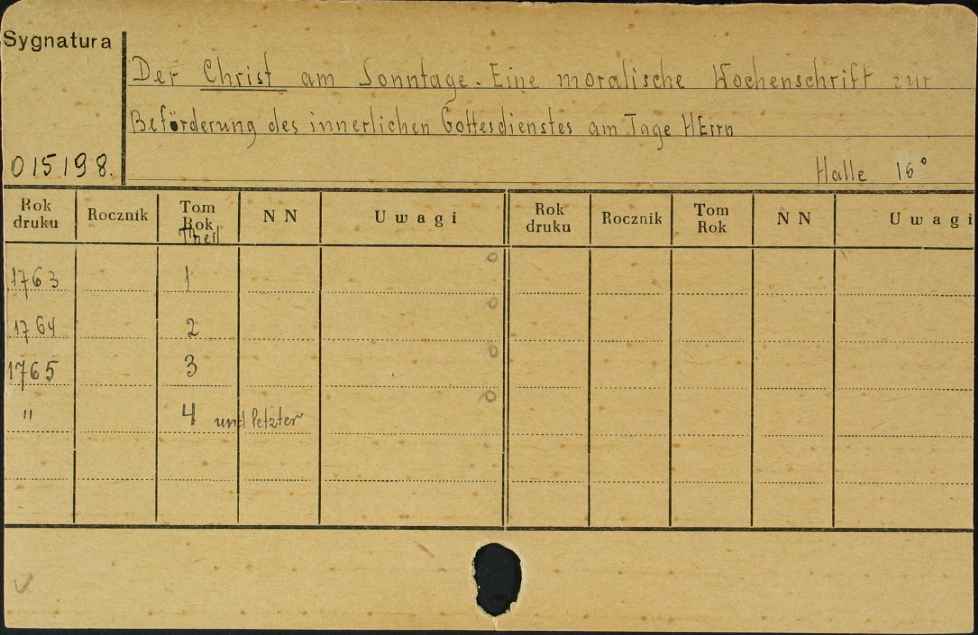 Sygnatura
Der Christ am Sonntage. Eine moralische Wochenschrift zur
Beförderung des innerlichen Gottesdienstes am Tage HErrn
015198.
Halle 16°
Rok druku Rocznik Tom Rok Theil N N Uwagi Rok druku Rocznik Tom Rok N N Uwagi
1763 1 0
1764 2 0
1765 3 0
" 4 und letzter 0